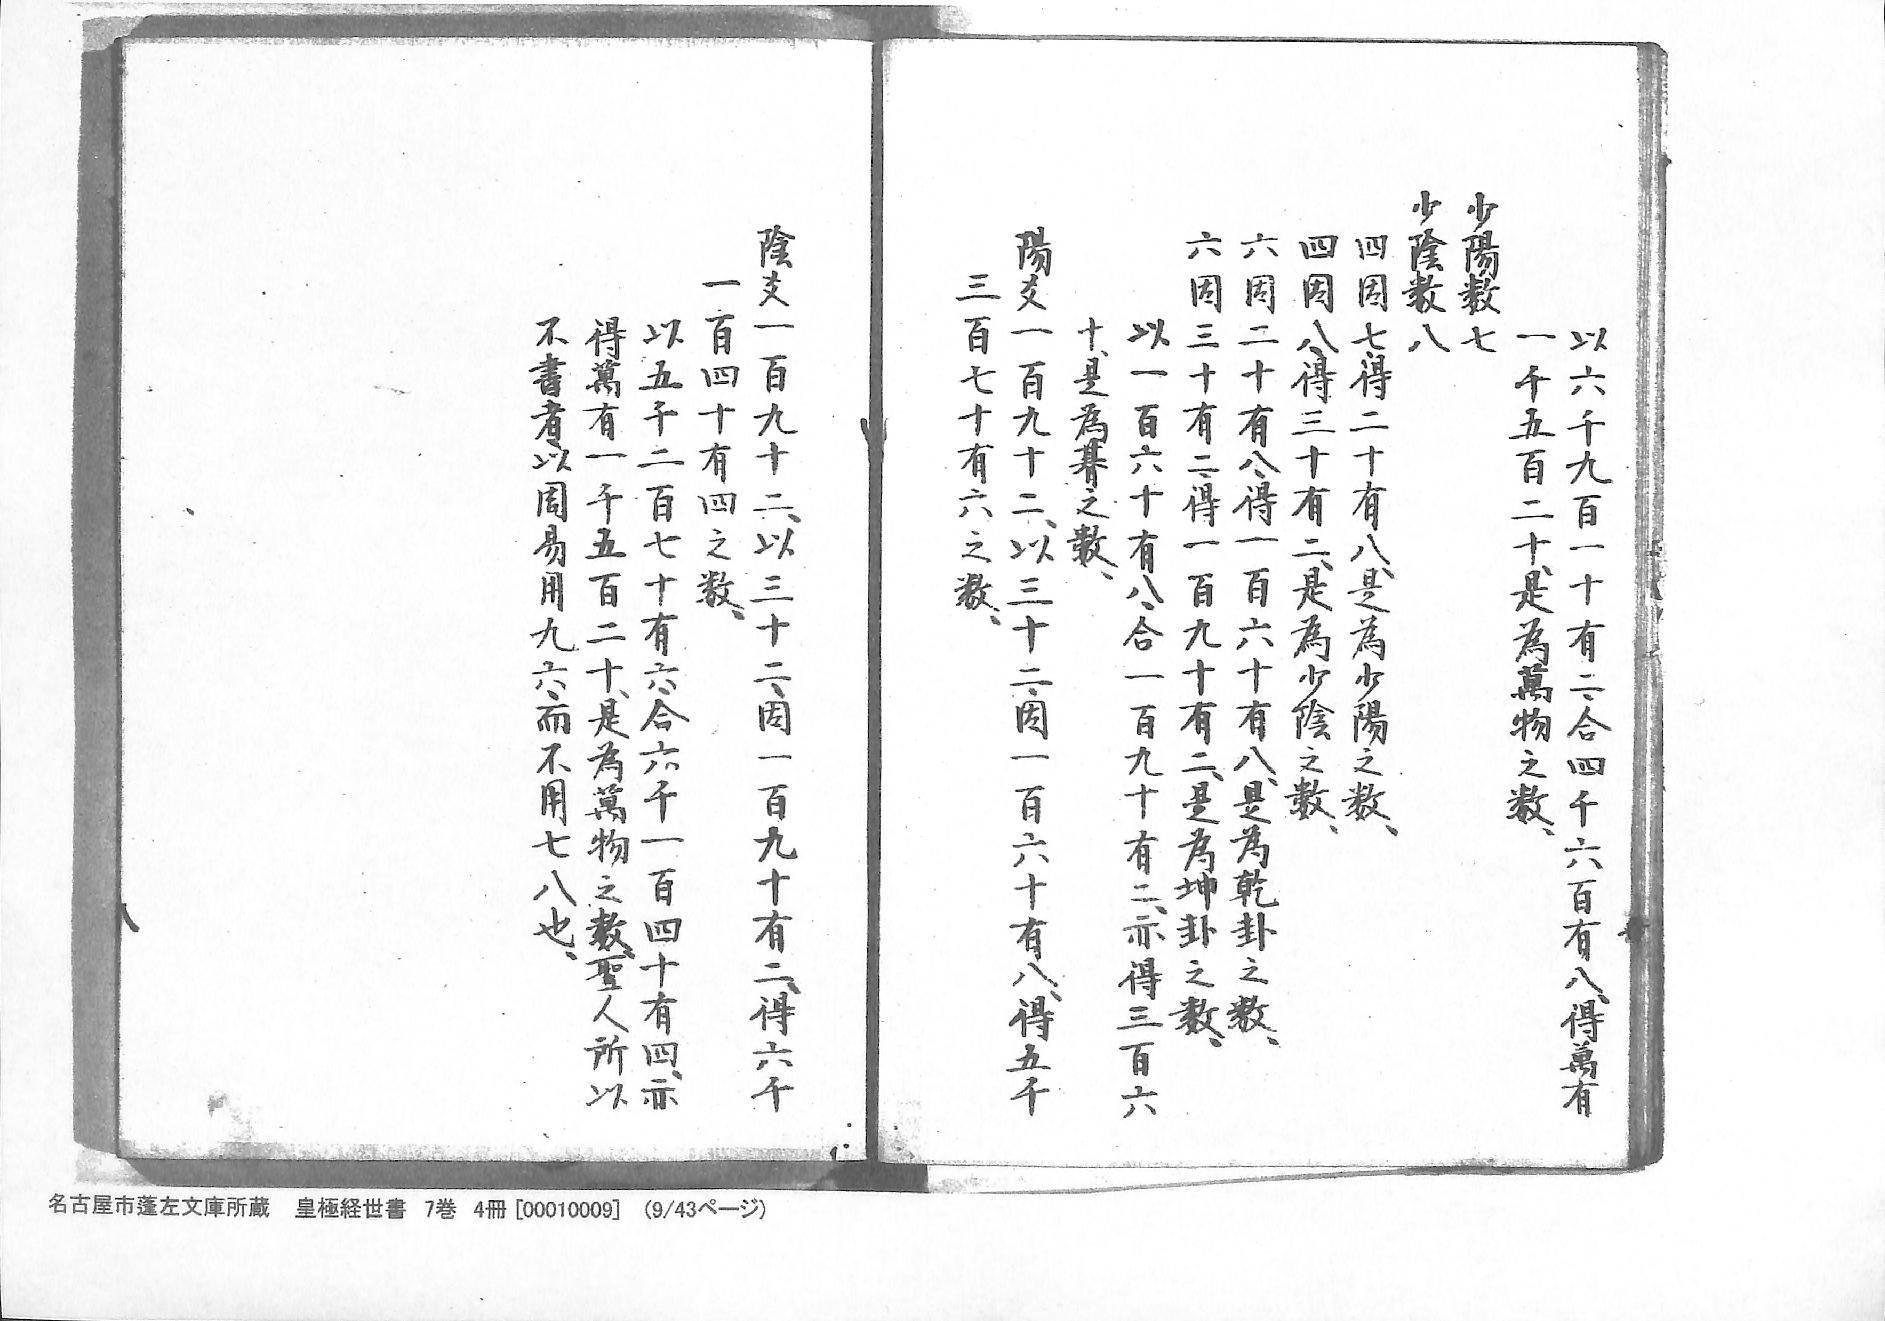 以六千九百一十有二、合四千六百有八、得萬有
一千五百二十、是為萬物之数、
少陽数七
少陰数八
四因七、得二十有八、是為少陽之数、
四因八、得三十有二、是為少陰之数、
六因二十有八、得一百六十有八、是為乾卦之数、
六因三十有二、得一百九十有二、是為坤卦之数、
以一百六十有八、合一百九十有二、亦得三百六
十、是為朞之数、
陽爻一百九十二、以三十二、因一百六十有八、得五千
三百七十有六之数、
陰爻一百九十二、以三十二、因一百九十有二、得六千
一百四十有四之数、
以五千二百七十有六、合六千一百四十有四、亦
得萬有一千五百二十、是為萬物之数、聖人所以
不書者、以周易用九六、而不用七八也、
名古屋市蓬左文庫所蔵 皇極経世書 7巻 4冊 [00010009] (9/43ページ)